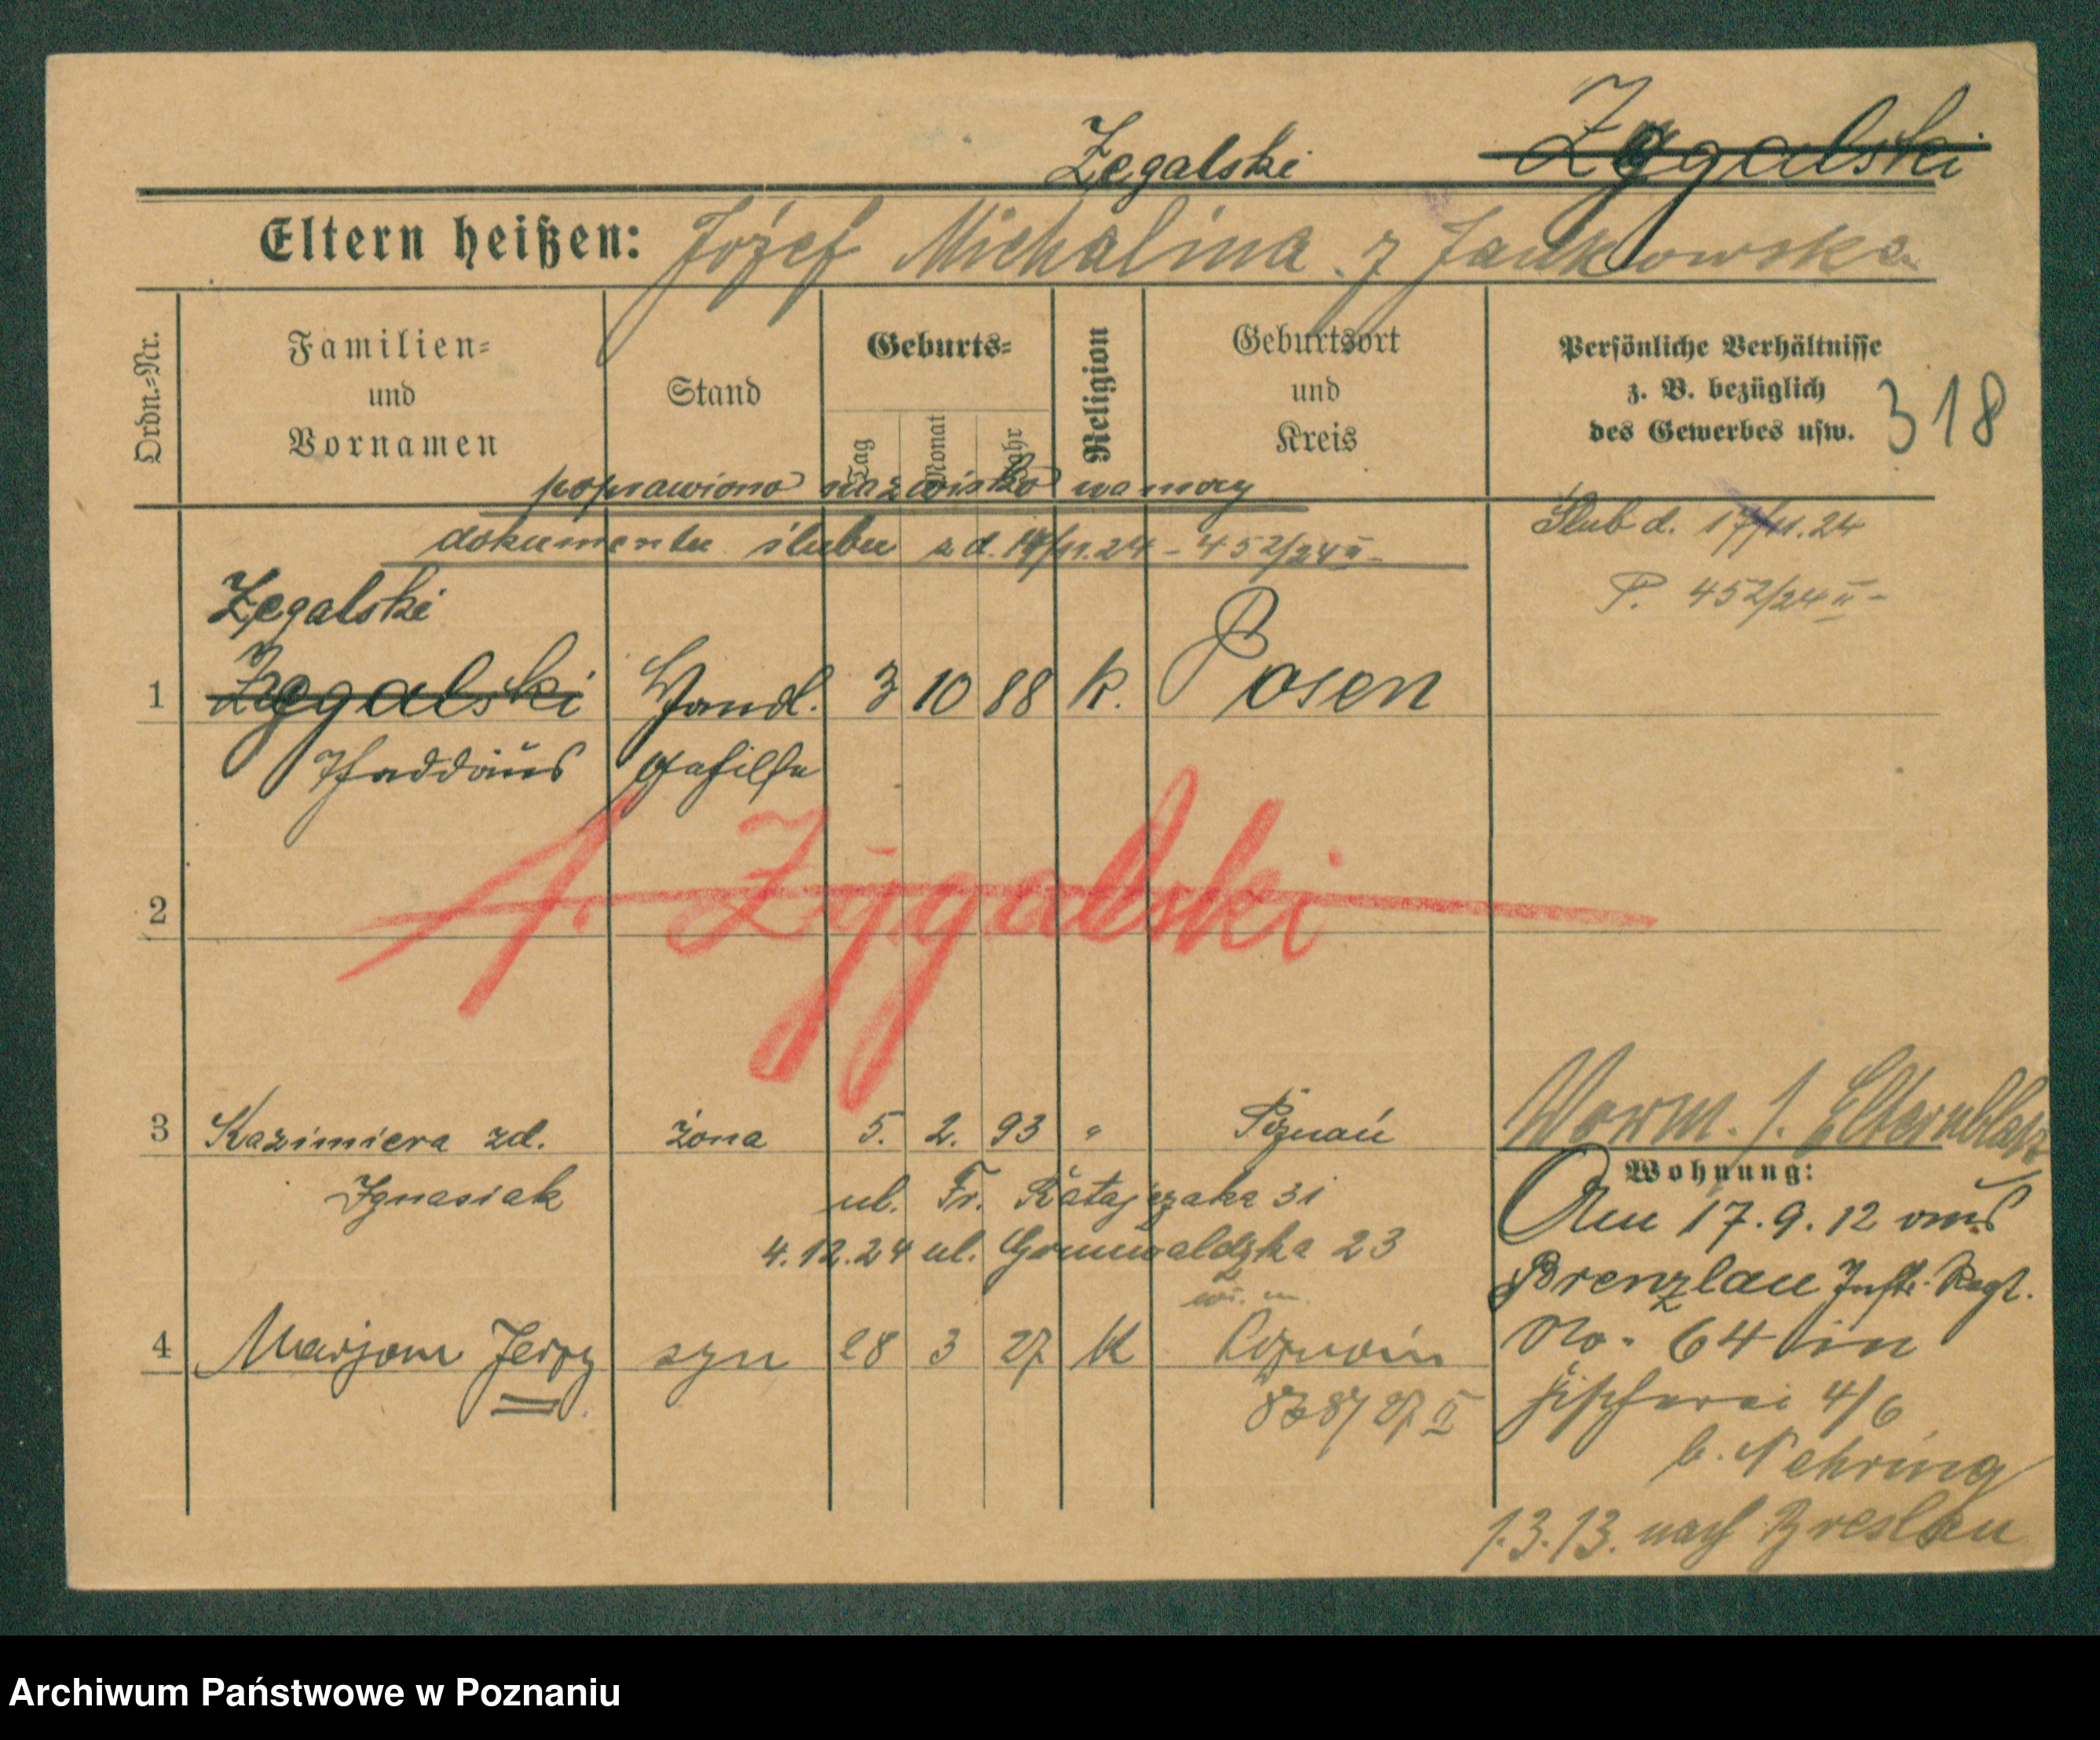 Żegalski Zygalski
Eltern heißen: Józef Michalina z Jankowska
Ordn.-Nr.
Familien-
und
Vornamen
Stand
Geburts-
Tag
Monat
Jahr
Religion
Geburtsort
und
Kreis
Persönliche Verhältnisse
z. B. bezüglich
des Gewerbes usw.
318
poprawiono nazwisko na mocy
dokumentu ślubu z d. 17/11.24 - 452/24 II -
Ślub d. 17/11.24
P. 452/24 II -
Żegalski
1 Zygalski Hand. 3 10 88 k. Posen
Thaddäus gehilfe
A. Zygalski
2
3 Kazimiera zd. żona 5. 2. 93 " Poznań
Ignasiak ul. Fr. Ratajczaka 31
4.12.24 ul. Grunwaldzka 23
w. m.
4 Marjan Jerzy syn 28 3 27 K Poznań
27 II
Vorm. s. Elternblatt
Wohnung:
Am 17.9.12 aus
Prenzlau Inft. Regt.
No. 64 in
Fischerei 4/6
b. Nehring
1.3.13. nach Breslau
Archiwum Państwowe w Poznaniu